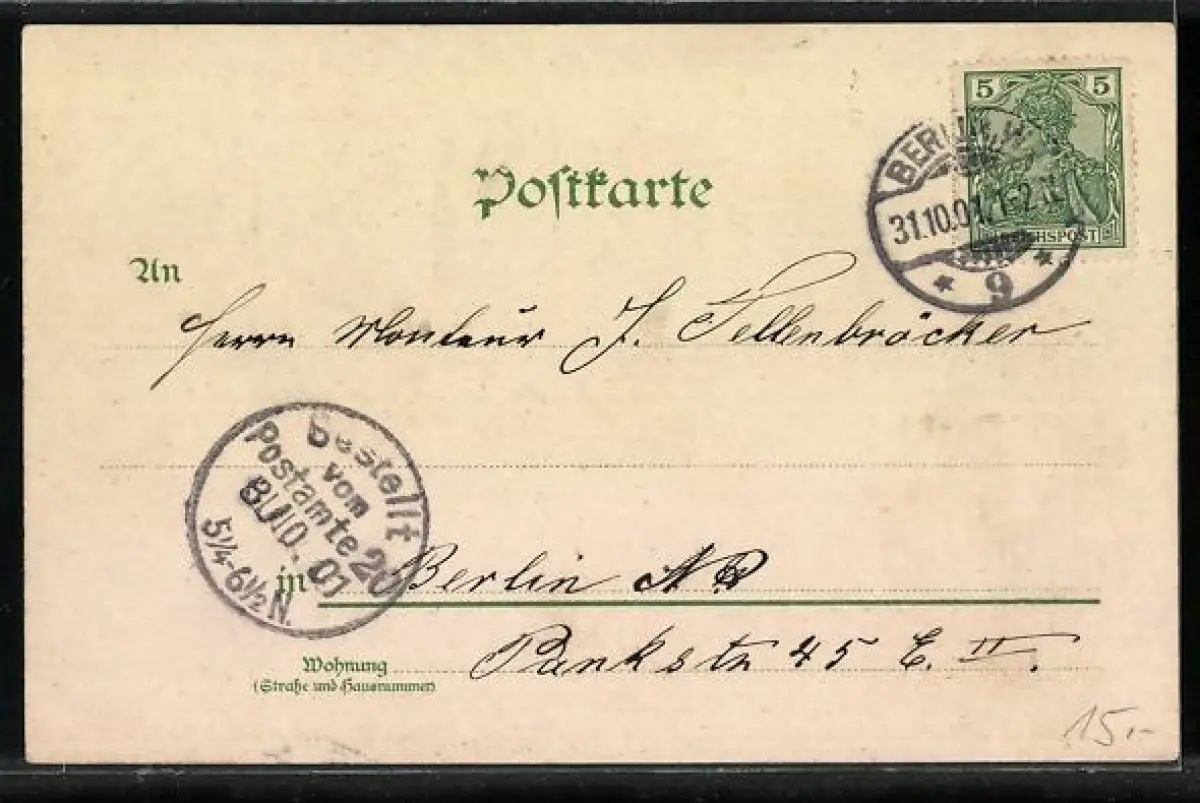 5 5
REICHSPOST
BERLIN, W.
31.10.01. 1-2 N.
* 9 *
Postkarte
An
Herrn Monteur J. Sellenbröcker
Bestellt
vom
Postamte 20
31/10. 01
5¼-6½ N.
in Berlin N
Pankstr 45 E. II.
Wohnung
(Straße und Hausnummer)
15.-